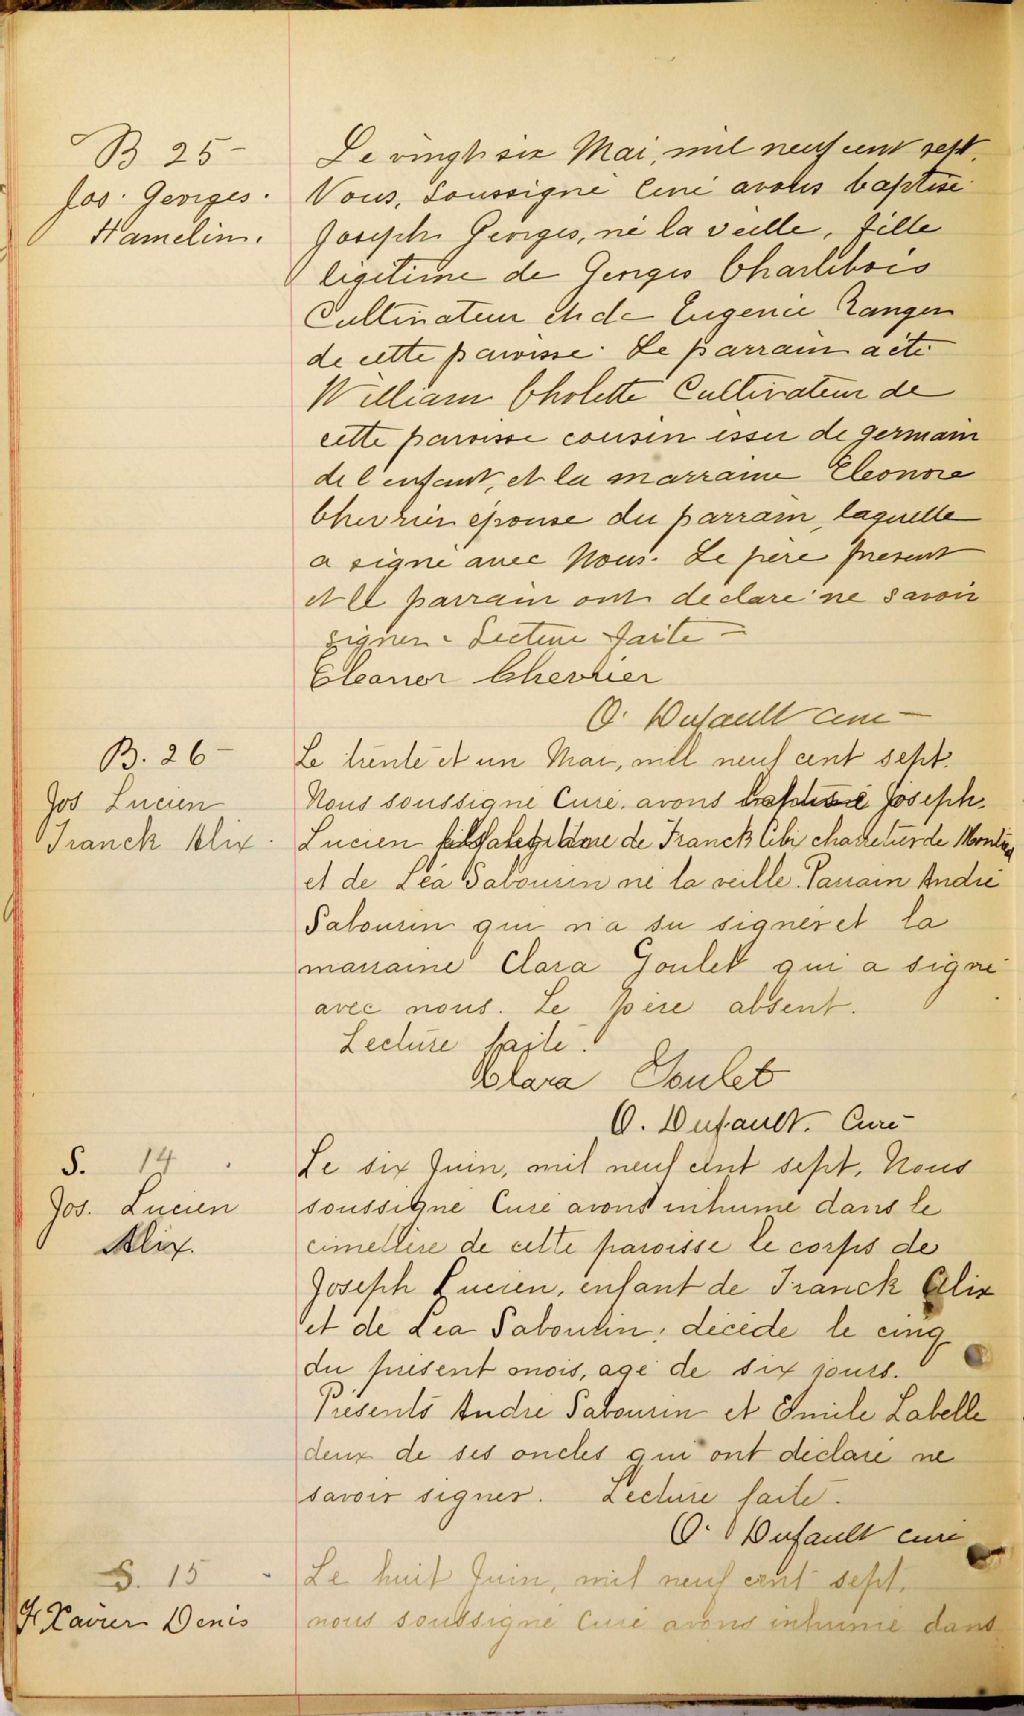 B 25
Jos. Georges.
Hamelin.
Le vingt six Mai, mil neuf cent sept.
Nous, soussigné curé avons baptisé
Joseph Georges, né la veille, fille
ligitime de Georges Charlebois
Cultivateur et de Eugenie Ranger
de cette paroisse. Le parrain a été
William Cholette Cultivateur de
cette paroisse cousin issu de germain
de l'enfant, et la marraine Eleonore
Chevrier épouse du parrain, laquelle
a signé avec Nous. Le père présent
et le parrain ont déclaré ne savoir
signer. Lecture faite
Eleanor Chevrier
O. Dufault curé
B. 26
Jos Lucien
Franck Alix.
Le trente et un Mai, mil neuf cent sept.
Nous soussigné Curé. avons baptisé Joseph
Lucien fils légitime de Franck Alix charretier de Montréal
et de Léa Sabourin né la veille. Parrain André
Sabourin qui n'a su signer et la
marraine Clara Goulet qui a signé
avec nous. Le père absent.
Lecture faite.
Clara Goulet
O. Dufault. Curé
S. 14
Jos. Lucien
Alix.
Le six Juin, mil neuf cent sept, Nous
soussigné Curé avons inhumé dans le
cimetière de cette paroisse le corps de
Joseph Lucien, enfant de Franck Alix
et de Léa Sabourin, décédé le cinq
du présent mois, agé de six jours.
Présents André Sabourin et Emile Labelle
deux de ses oncles qui ont déclaré ne
savoir signer. Lecture faite.
O. Dufault curé
S. 15
F Xavier Denis
Le huit Juin, mil neuf cent sept,
nous soussigné Curé avons inhumé dans